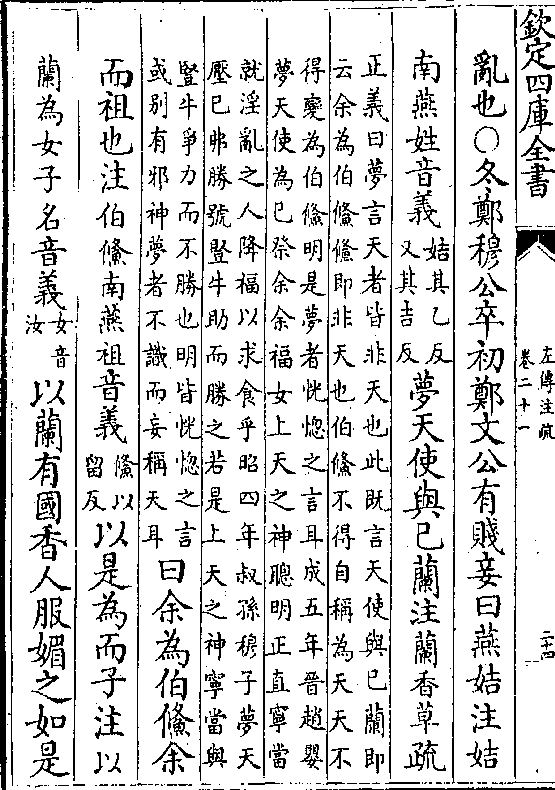 欽定四庫全書
左傳注疏
卷二十一
二十四
亂也○冬鄭穆公卒初鄭文公有賤妾曰燕姞注姞
南燕姓音義姞其乙反又其吉反夢天使與已蘭注蘭香草疏
正義曰夢言天者皆非天也此既言天使與已蘭即
云余為伯鯈鯈即非天也伯鯈不得自稱為天天不
得變為伯鯈明是夢者恍惚之言耳成五年晉趙嬰
夢天使為已祭余余福女上天之神聰明正直寧當
就淫亂之人降福以求食乎昭四年叔孫穆子夢天
壓已弗勝號豎牛助而勝之若是上天之神寧當與
豎牛爭力而不勝也明皆恍惚之言
或别有邪神夢者不識而妄稱天耳曰余為伯鯈余
而祖也注伯鯈南燕祖音義鯈以留反以是為而子注以
蘭為女子名音義女音汝以蘭有國香人服媚之如是